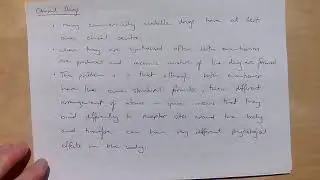 Chiral Drugs
• many commercially available drugs have at least
one chiral centre.
• when they are synthesised often both enantiomers
are produced and racemic mixture of the drug is formed
• The problem is that although both enantiomers
have the same structural formula, their different
arrangement of atoms in space means that they
bind differently to receptor sites around the body
and therefore can have very different physiological
effects in the body.